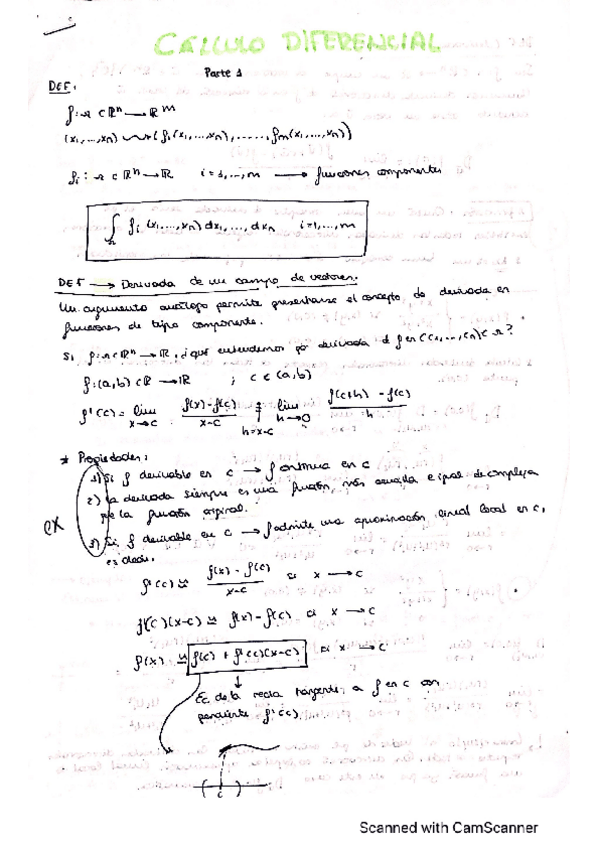 CÁLCULO DIFERENCIAL
Parte 1
DEF:
f: Ω ⊂ ℝⁿ ⟶ ℝᵐ
(x₁,...,xₙ) ⇝ (f₁(x₁,...,xₙ),......fₘ(x₁,...,xₙ))
fᵢ: Ω ⊂ ℝⁿ ⟶ ℝ i=1,...,m ⟶ funciones componentes
∫_Ω fᵢ (x₁,...,xₙ) dx₁,..., dxₙ i=1,...,m
DEF ⟶ Derivada de un campo de vectores.
Un argumento análogo permite presentarse el concepto de derivada en
funciones de tipo componente.
Si f: Ω ⊂ ℝⁿ ⟶ ℝ, ¿qué entendemos por derivada d f en (c₁,...,cₙ) ⊂ Ω?
f: (a,b) ⊂ ℝ ⟶ ℝ ; c ∈ (a,b)
f'(c) = lim x→c (f(x)-f(c))/(x-c) = lim h→0 (f(c+h) - f(c))/h
h=x-c
* Propiedades:
1) Si f derivable en c ⟶ f continua en c
2) La derivada siempre es una función, más sencilla e igual de compleja
que la función original.
ex
3) Si f derivable en c ⟶ f admite una aproximación lineal local en c,
es decir.
f'(c) ≅ (f(x) - f(c))/(x-c) si x ⟶ c
f'(c)(x-c) ≅ f(x) - f(c) si x ⟶ c
f(x) ≅ f(c) + f'(c)(x-c) si x ⟶ c
Ec de la recta tangente a f en c con
pendiente f'(c)
c
Scanned with CamScanner